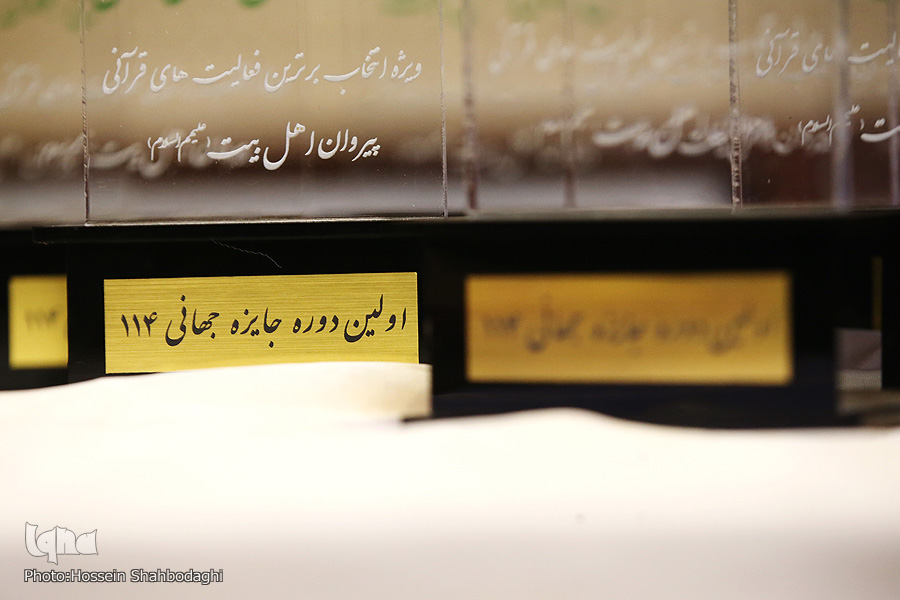 ویژه انتخاب برترین فعالیت های قرآنی
پیروان اهل بیت (علیهم السلام)
اولین دوره جایزه جهانی ۱۱۴
iqna
Photo:Hossein Shahbodaghi